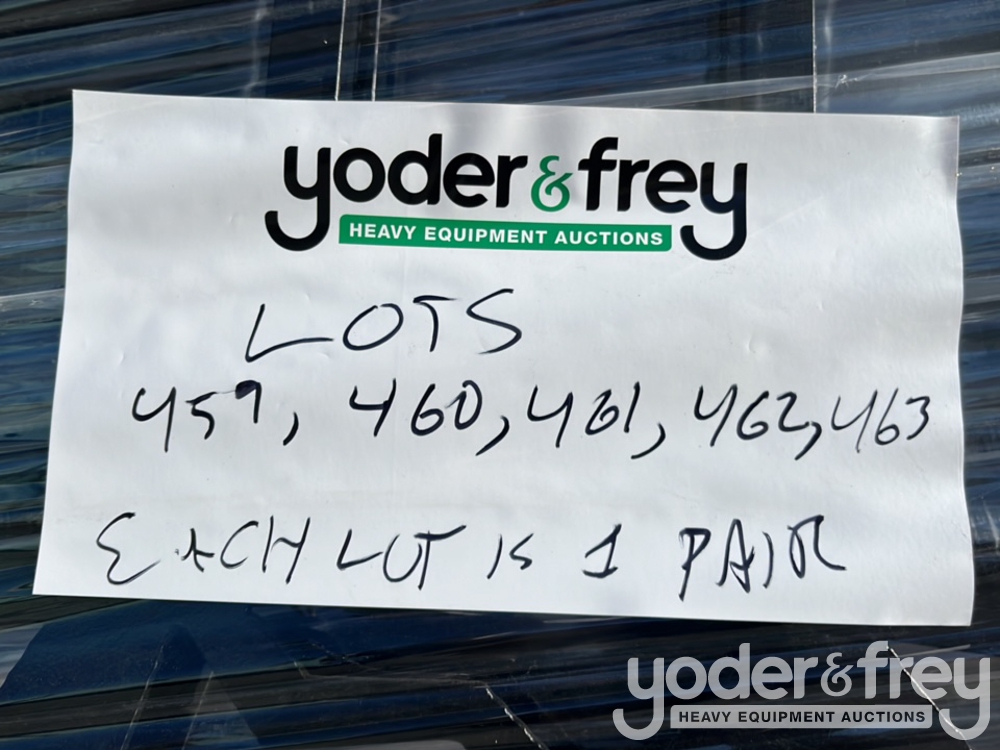 yoder & frey
HEAVY EQUIPMENT AUCTIONS
LOTS
459, 460, 461, 462, 463
EACH LOT IS 1 PAIR
yoder & frey
HEAVY EQUIPMENT AUCTIONS